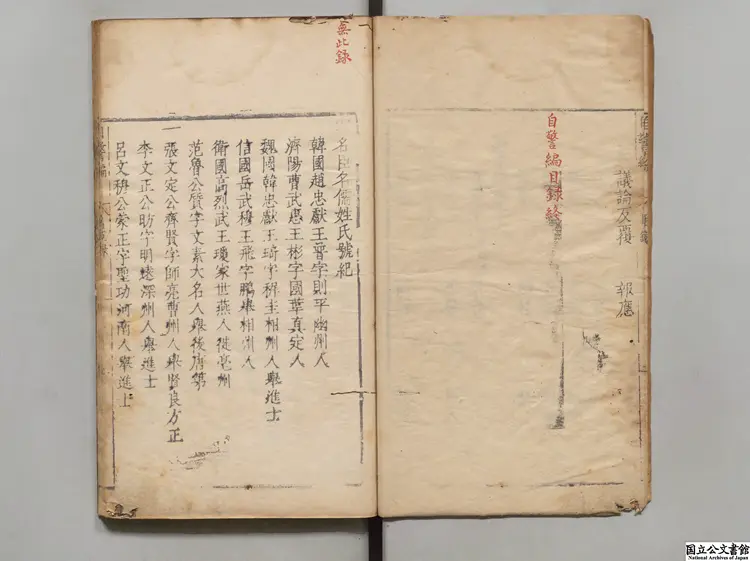 議論反覆 報應
自警編目録終
無此録
名臣名儒姓氏號紀
韓國趙忠獻王普字則平幽州人
濟陽曹武惠王彬字國華真定人
魏國韓忠獻王琦字稚圭相州人舉進士
信國岳武穆王飛字鵬舉相州人
衛國高烈武王瓊家世燕人徙亳州
范魯公質字文素大名人舉後唐第
張文定公齊賢字師亮曹州人舉賢良方正
李文正公昉字明遠深州人舉進士
呂文穆公蒙正字聖功河南人舉進士
国立公文書館
National Archives of Japan